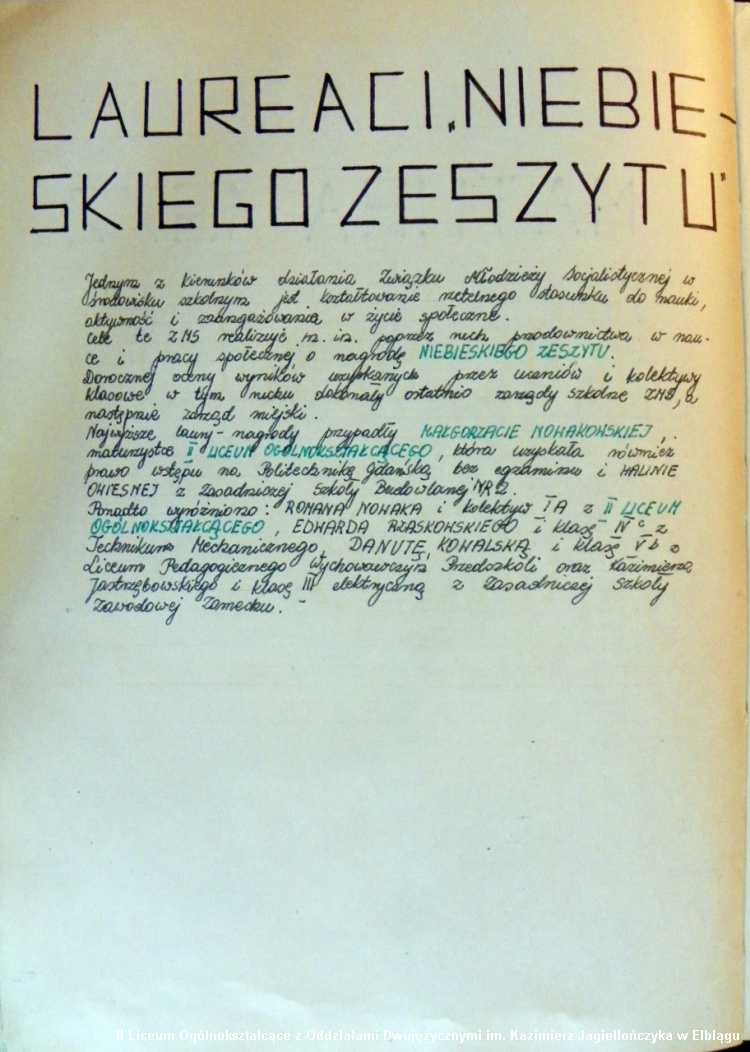 LAUREACI „NIEBIE-
SKIEGO ZESZYTU"
Jednym z kierunków działania Związku Młodzieży Socjalistycznej w
środowisku szkolnym jest kształtowanie rzetelnego stosunku do nauki,
aktywność i zaangażowania w życie społeczne.
Cele te ZMS realizuje m. in. poprzez ruch przodownictwa w nau-
ce i pracy społecznej o nagrodę NIEBIESKIEGO ZESZYTU.
Dorocznej oceny wyników uzyskanych przez uczniów i kolektywy
klasowe w tym ruchu dokonały ostatnio zarządy szkolne ZMS, a
następnie zarząd miejski.
Najwyższe laury-nagrody przypadły MAŁGORZACIE NOWAKOWSKIEJ,
maturzystce II LICEUM OGÓLNOKSZTAŁCĄCEGO, która uzyskała również
prawo wstępu na Politechnikę Gdańską bez egzaminu i HALINIE
OWIESNEJ z Zasadniczej Szkoły Budowlanej NR 2.
Ponadto wyróżniono: ROMANA NOWAKA i kolektyw IA z II LICEUM
OGÓLNOKSZTAŁCĄCEGO, EDWARDA RZASKOWSKIEGO i klasę IV c z
Technikum Mechanicznego, DANUTĘ KOWALSKĄ i klasę V b z
Liceum Pedagogicznego Wychowawczyń Przedszkoli oraz Kazimierza
Jastrzębowskiego i klasę III elektryczną z Zasadniczej Szkoły
Zawodowej Zamechu.-
II Liceum Ogólnokształcące z Oddziałami Dwujęzycznymi im. Kazimierz Jagiellończyka w Elblągu